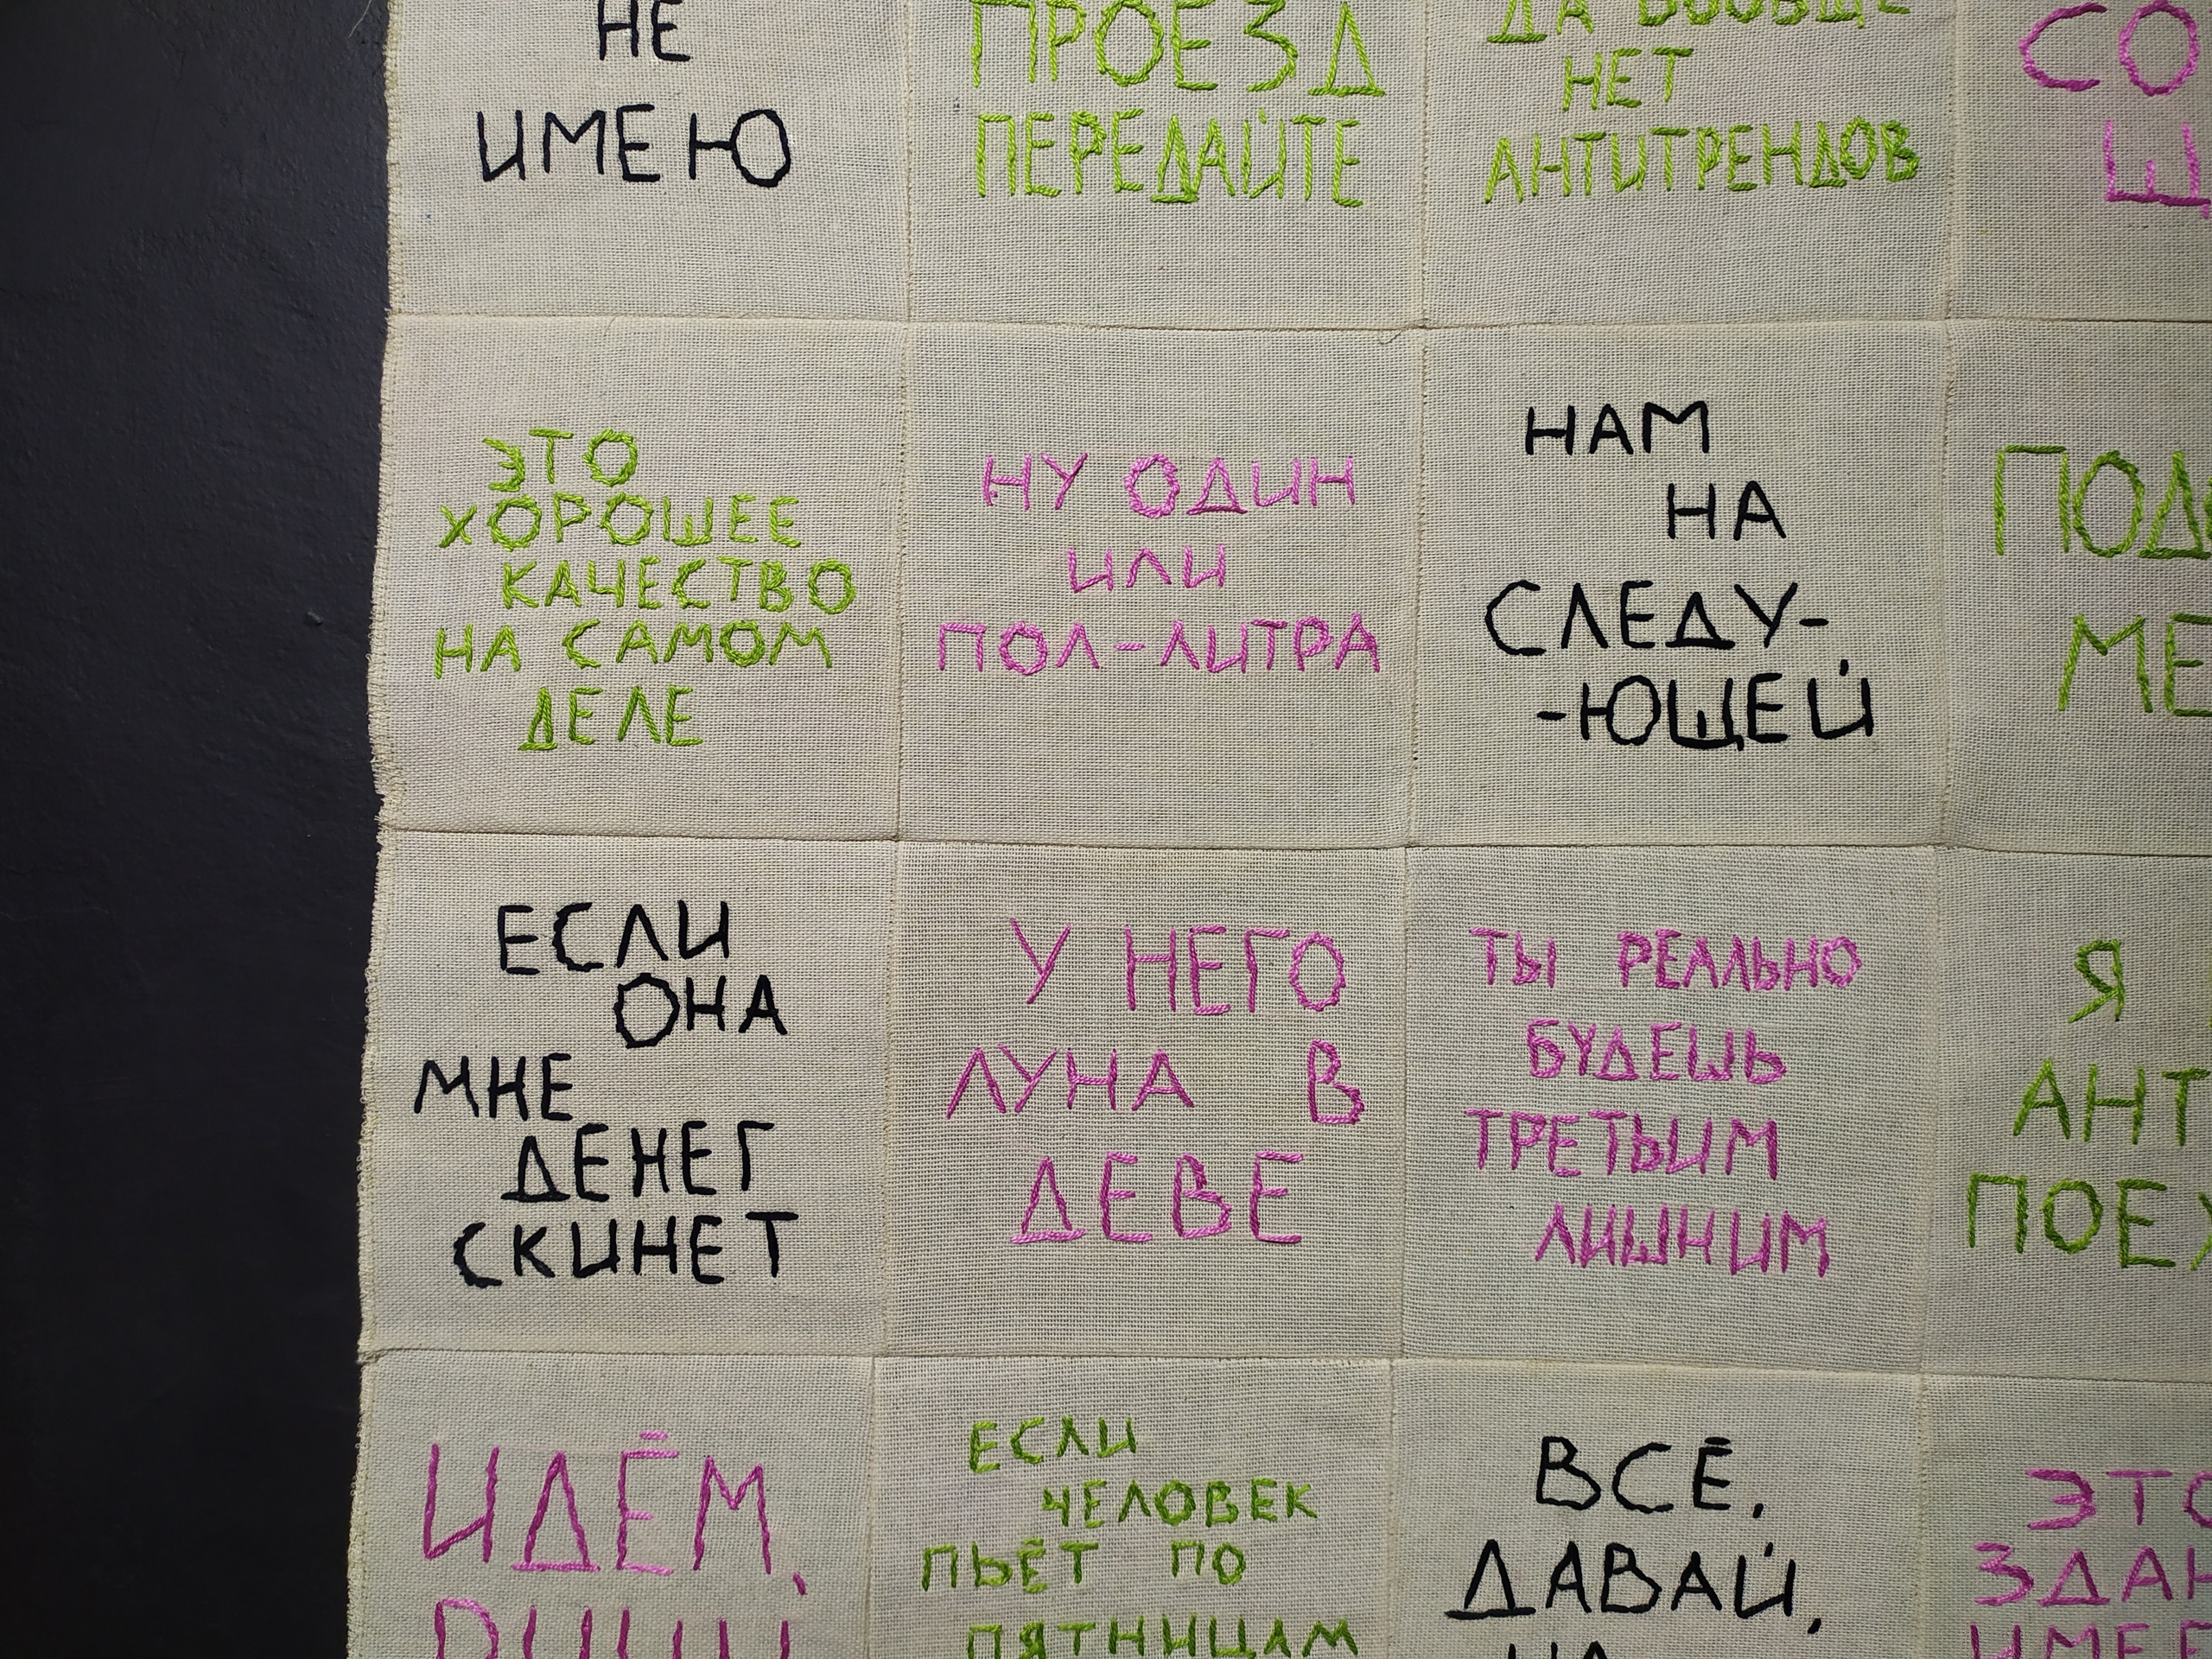 НЕ
ИМЕЮ
ПРОЕЗД
ПЕРЕДАЙТЕ
ДА ВООБЩЕ
НЕТ
АНТИТРЕНДОВ
СО
ЭТО
ХОРОШЕЕ
КАЧЕСТВО
НА САМОМ
ДЕЛЕ
НУ ОДИН
ИЛИ
ПОЛ-ЛИТРА
НАМ
НА
СЛЕДУ-
-ЮЩЕЙ
ПОД
МЕ
ЕСЛИ
ОНА
МНЕ
ДЕНЕГ
СКИНЕТ
У НЕГО
ЛУНА В
ДЕВЕ
ТЫ РЕАЛЬНО
БУДЕШЬ
ТРЕТЬИМ
ЛИШНИМ
Я
АНТ
ПОЕ
ИДЁМ,
ЕСЛИ
ЧЕЛОВЕК
ПЬЁТ ПО
ПЯТНИЦАМ
ВСЁ,
ДАВАЙ,
НА
ЭТО
ЗДАН
ИМЕЕ